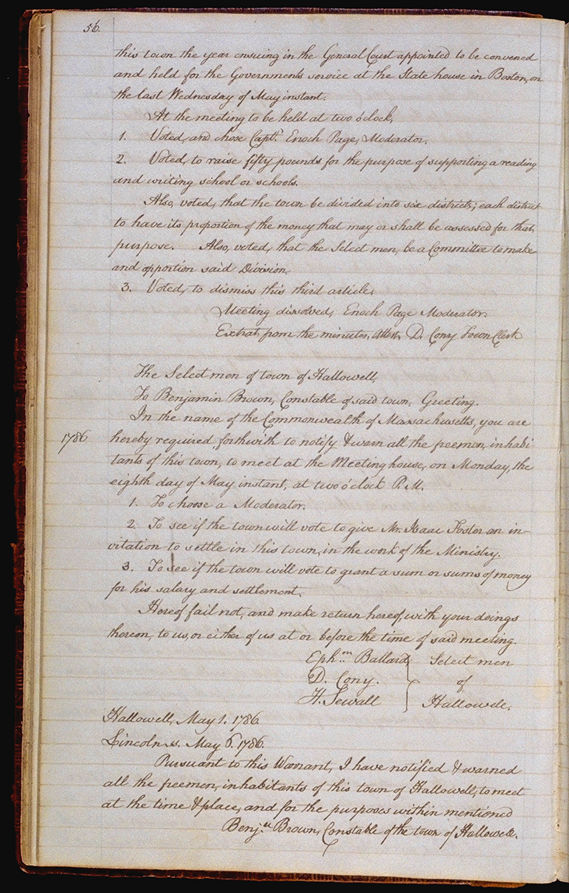 56.
this town the year ensuing in the General Court appointed to be convened
and held for the Governments service at the State house in Boston, on
the last Wednesday of May instant.
At the meeting to be held at two o'clock,
1. Voted, and chose Capt. Enoch Page, Moderator.
2. Voted, to raise fifty pounds for the purpose of supporting a reading
and writing school or schools.
Also, voted, that the town be divided into six districts; each district
to have its proportion of the money that may or shall be assessed for that
purpose. Also, voted, that the Select men, be a Committee to make
and apportion said Division.
3. Voted, to dismiss this third article.
Meeting dissolved, Enoch Page Moderator.
Extract from the minutes, Attest, D. Cony Town Clerk
The Select men of town of Hallowell,
To Benjamin Brown, Constable of said town, Greeting.
In the name of the Commonwealth of Massachusetts, you are
1786 hereby required, forthwith to notify & warn all the freemen, inhabi
tants of this town, to meet at the Meeting house, on Monday, the
eighth day of May instant, at two o'clock P.M.
1. To choose a Moderator.
2. To see if the town will vote to give Mr. Isaac Foster an in-
vitation to settle in this town, in the work of the Ministry.
3. To see if the town will vote to grant a sum or sums of money
for his salary and settlement.
Hereof fail not, and make return hereof, with your doings
thereon, to us, or either of us at or before the time of said meeting.
Ephm Ballard Select men
D. Cony. of
H. Sewall Hallowell.
Hallowell, May 1. 1786
Lincoln ss. May 6. 1786.
Pursuant to this Warrant, I have notified & warned
all the freemen, inhabitants of this town of Hallowell, to meet
at the time & place, and for the purposes within mentioned
Benja Brown, Constable of the town of Hallowell.